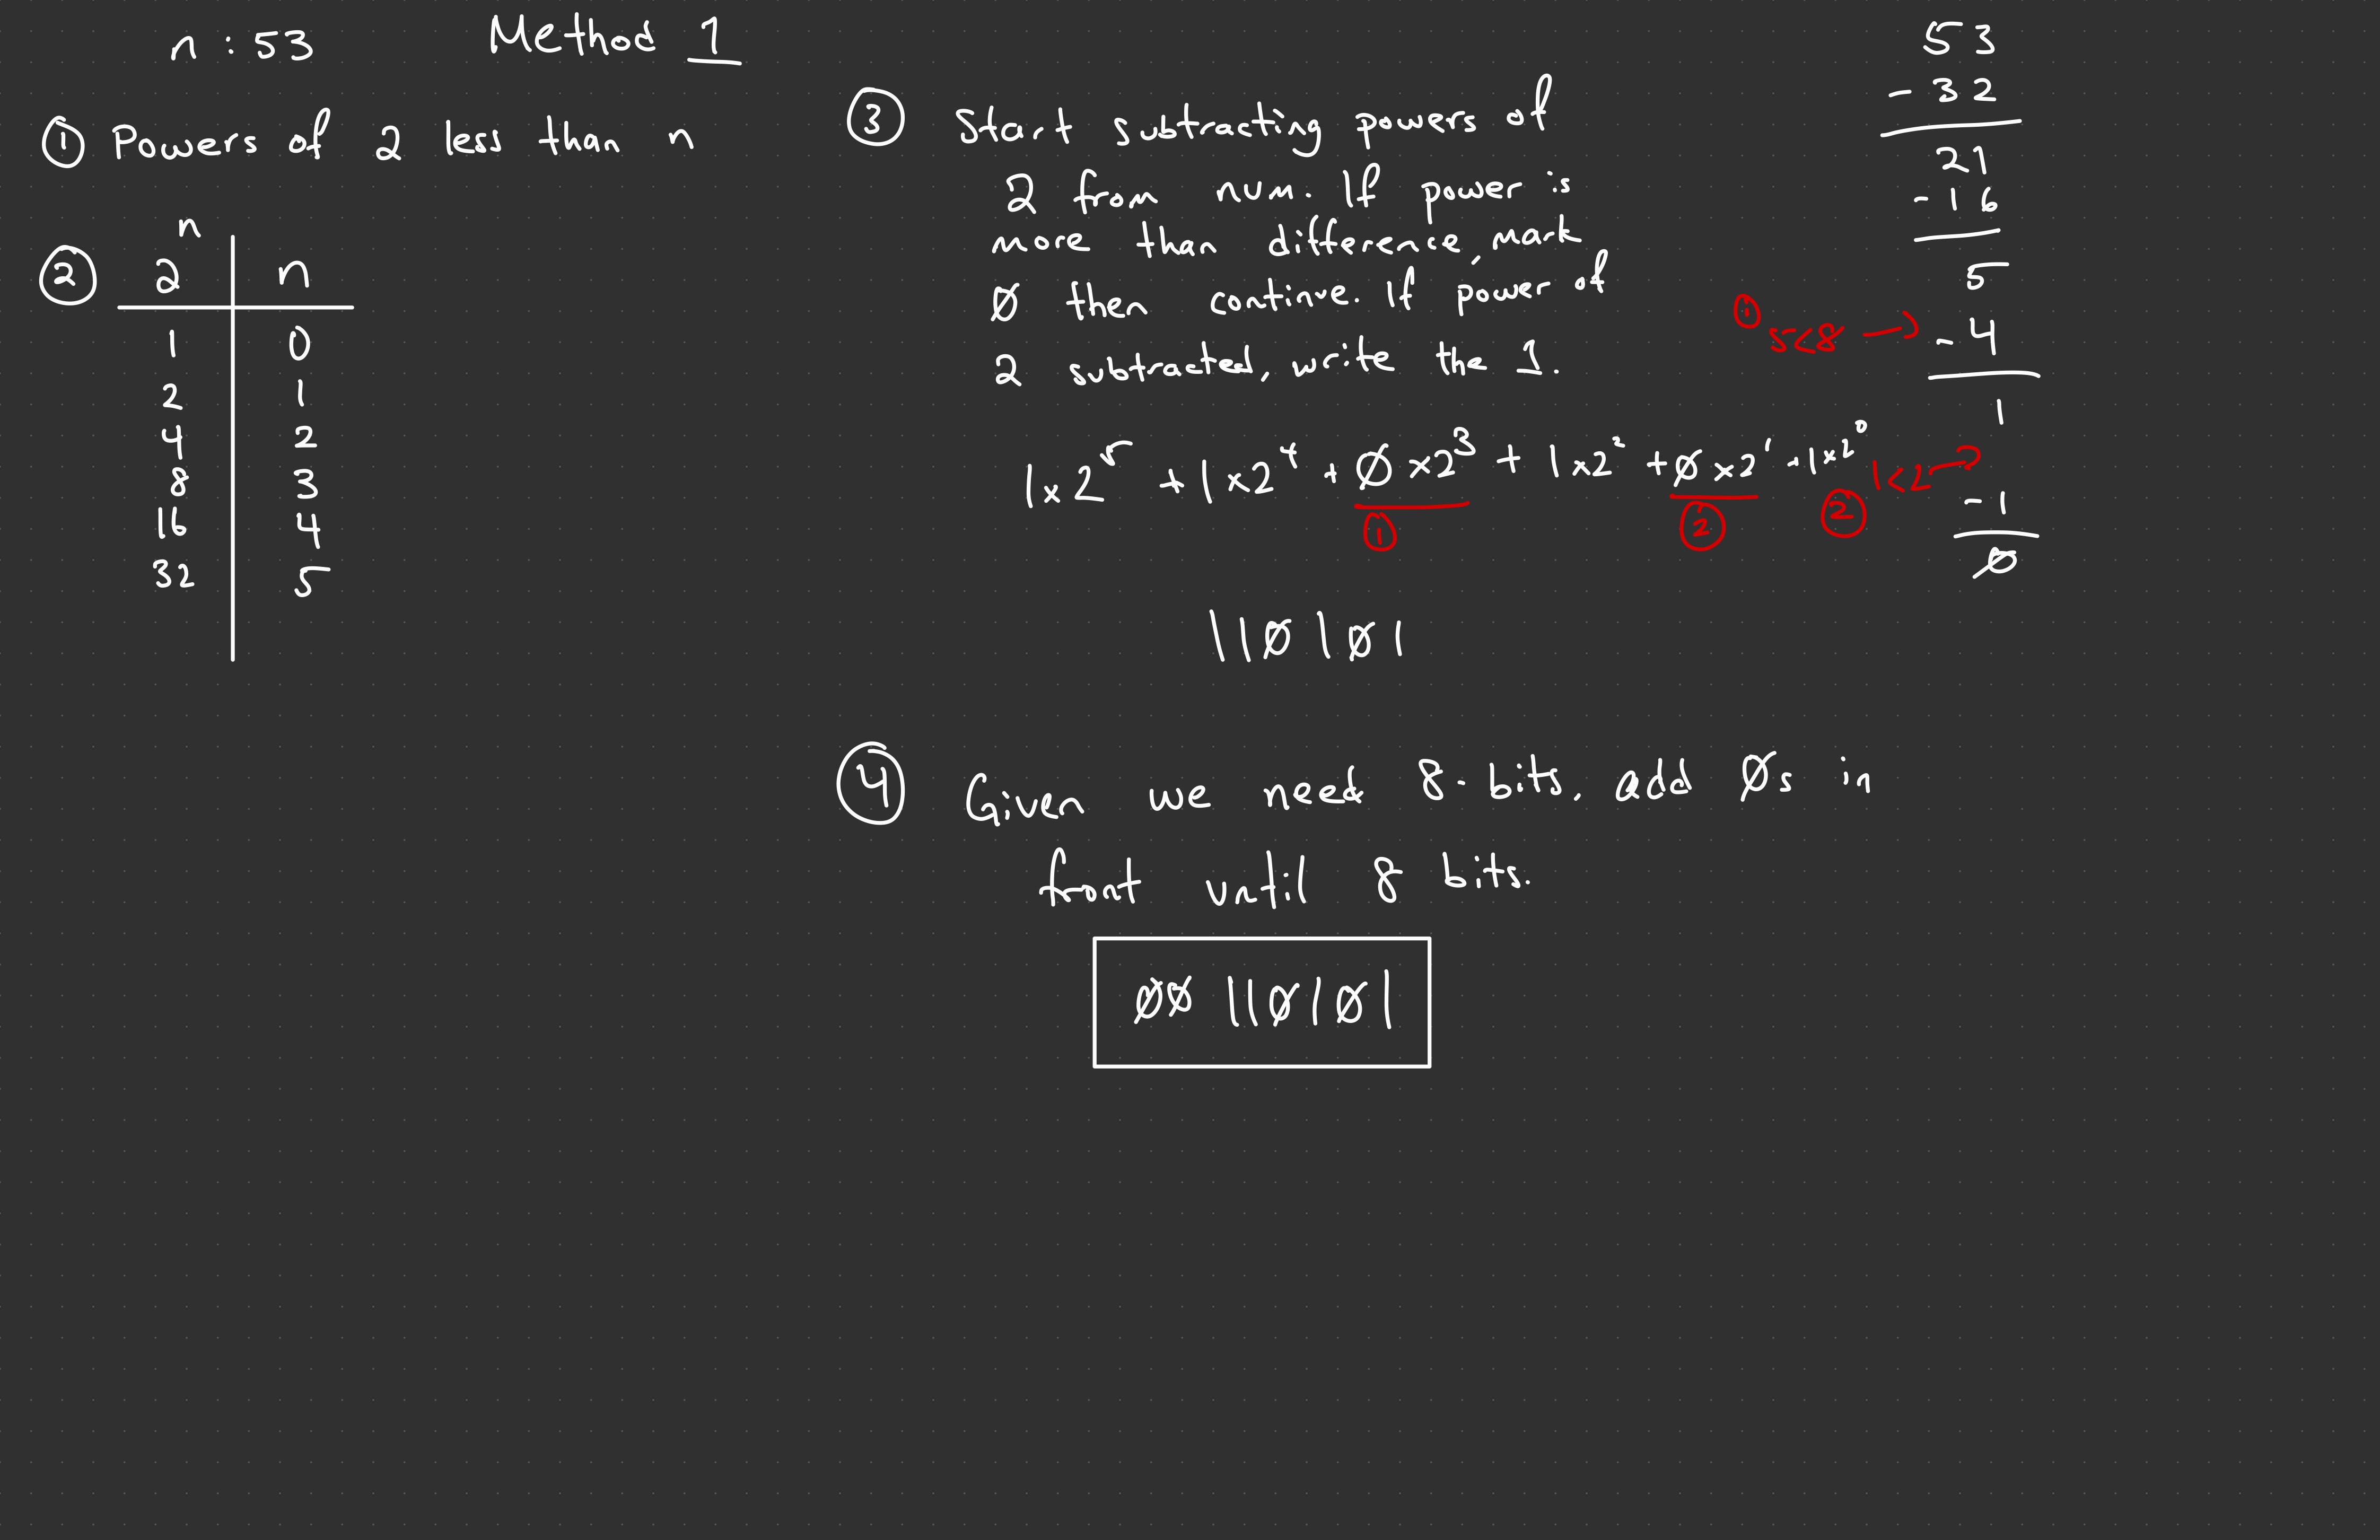 n : 53
Method 1
① Powers of 2 less than n
② 2ⁿ n
1 0
2 1
4 2
8 3
16 4
32 5
③ Start subtracting powers of
2 from num. If power is
more than difference, mark
Ø then continue. If power of
2 subtracted, write the 1.
1×2⁵ + 1×2⁴ + Ø×2³ + 1×2² + Ø×2¹ + 1×2⁰
① ②
11Ø1Ø1
53
- 32
21
- 16
5
① 5<8 →
- 4
1
② 1<2 →
- 1
Ø
④ Given we need 8-bits, add Øs in
front until 8 bits.
ØØ11Ø1Ø1